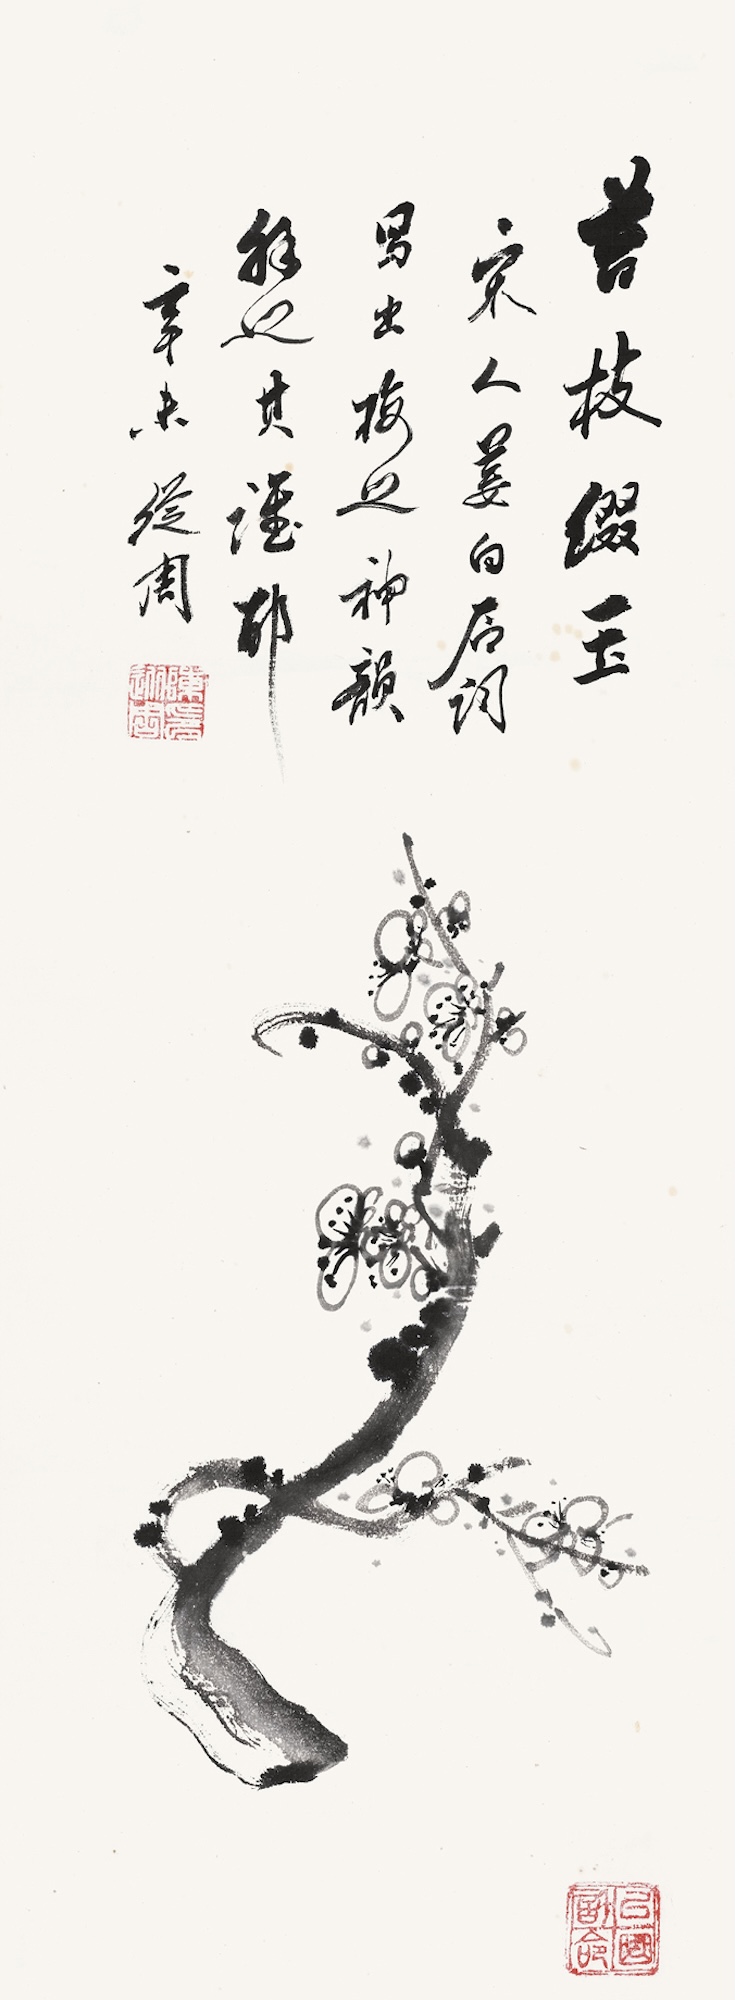 苔枝綴玉
宋人姜白石詞
寫出梅之神韻
解之其誰耶
辛未 從周